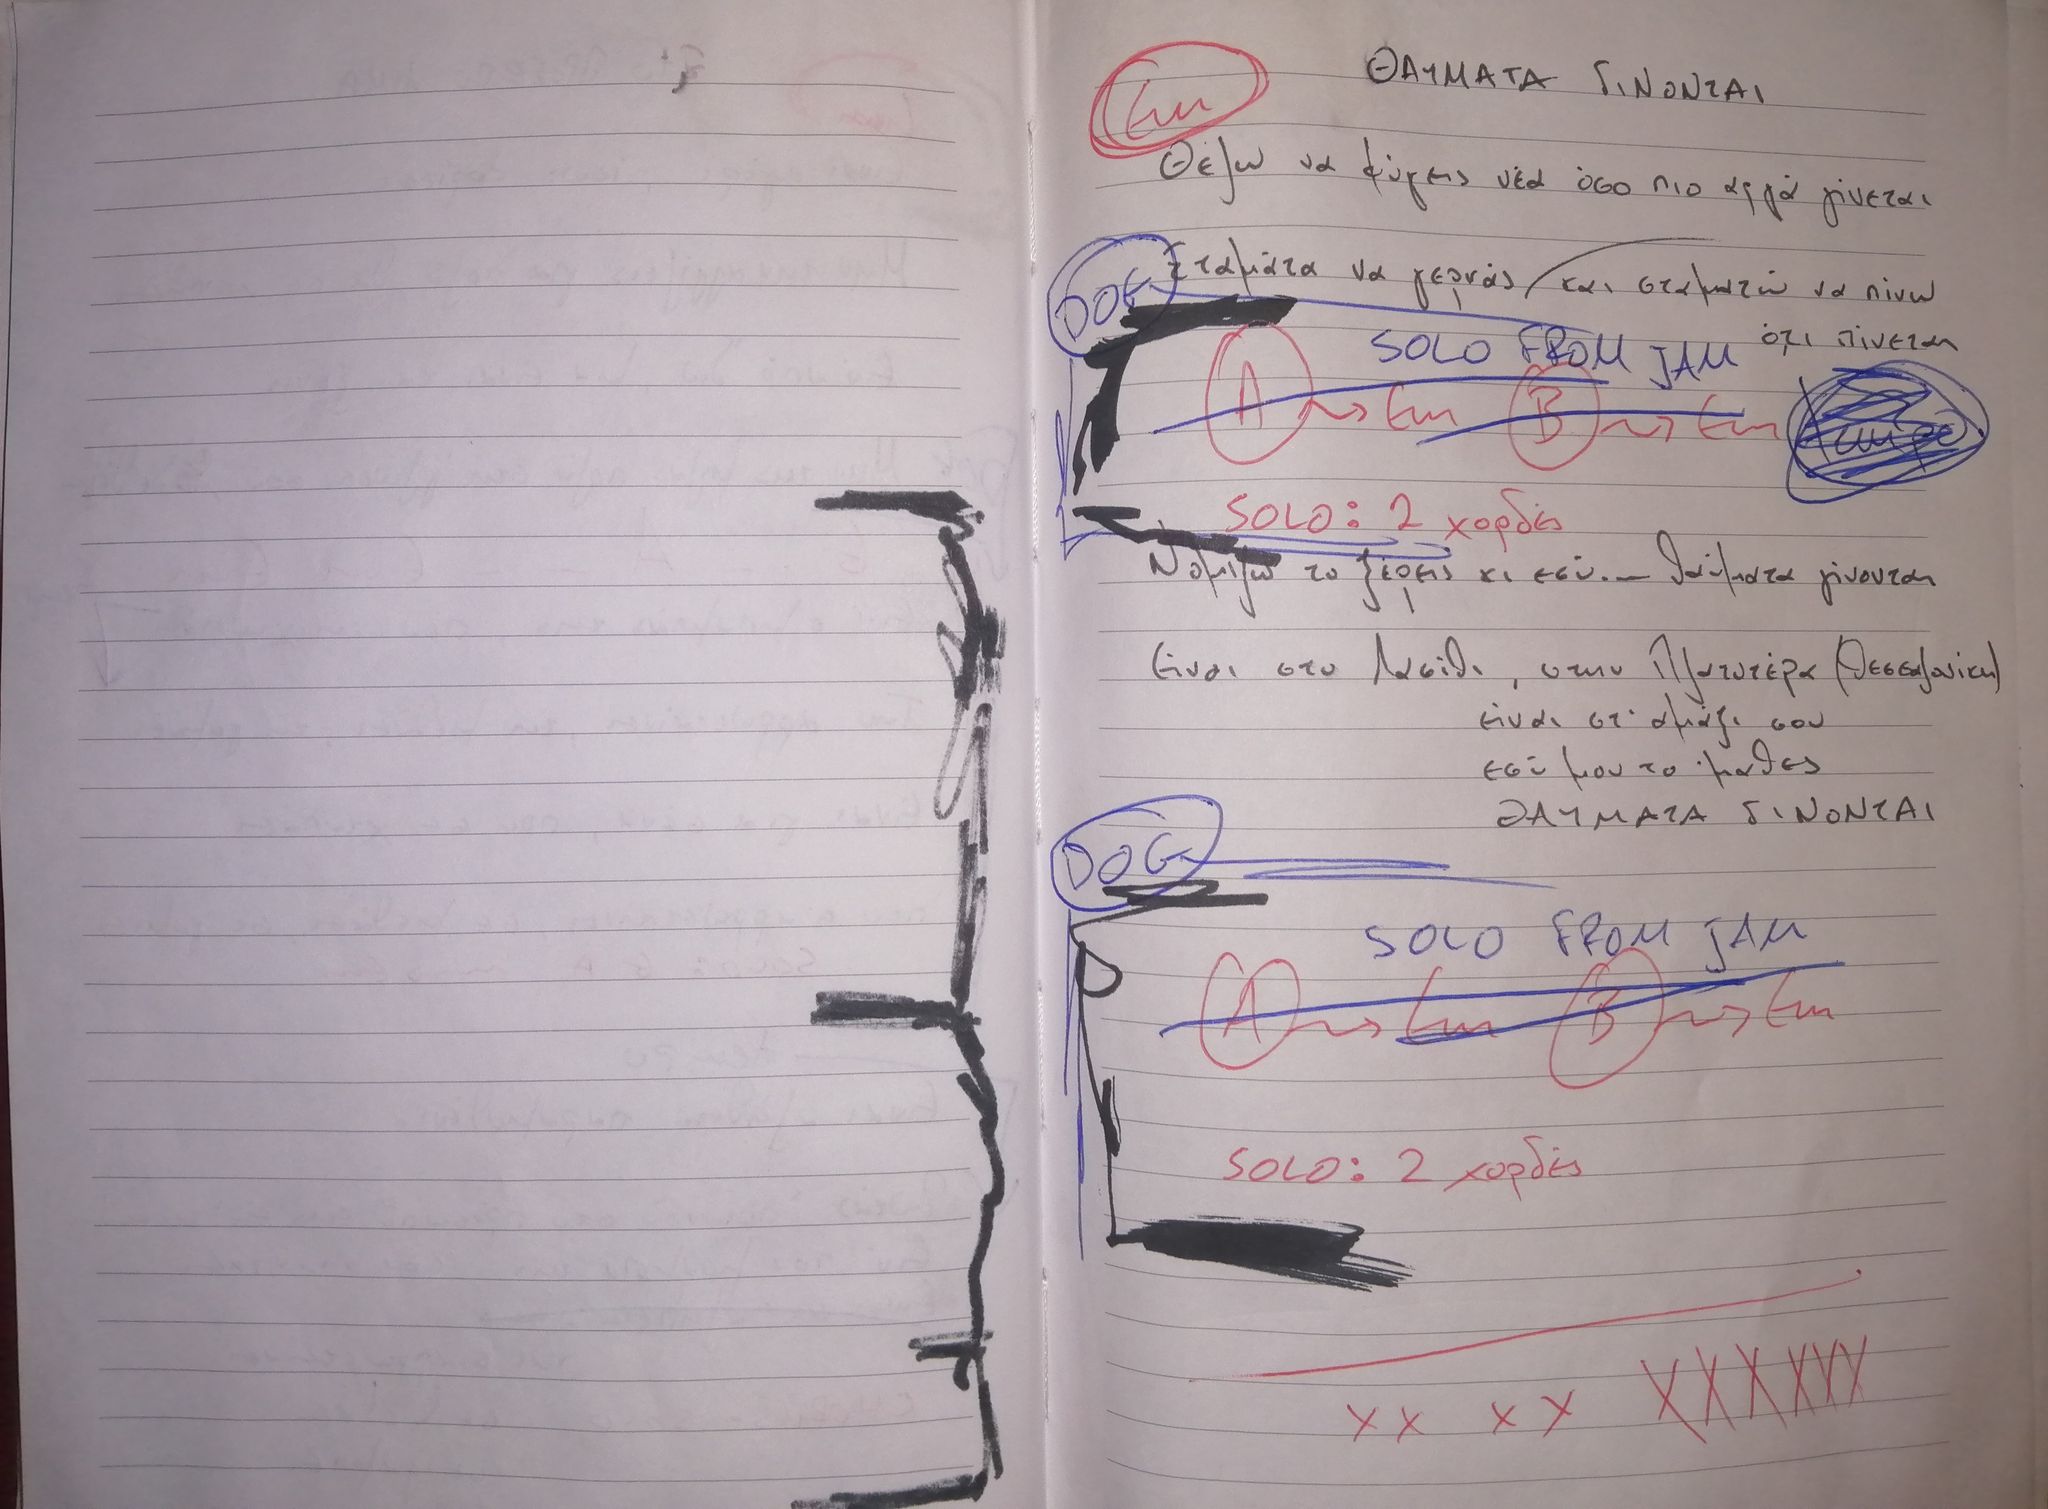 Em
ΘΑΥΜΑΤΑ ΓΙΝΟΝΤΑΙ
Θέλω να φύγεις νέα όσο πιο αργά γίνεται
Σταμάτα να γερνάς / και σταματώ να πίνω
ότι πίνεται
DOG
SOLO FROM JAM
A → Em B → Em
SOLO: 2 χορδές
Νομίζω το ξέρεις κι εσύ... θαύματα γίνονται
είναι στο Λασίθι, στην Πλατυτέρα (Θεσσαλονίκη)
είναι στ' αμάξι σου
εσύ μου το 'μαθες
ΘΑΥΜΑΤΑ ΓΙΝΟΝΤΑΙ
DOG
SOLO FROM JAM
A → Em B → Em
SOLO: 2 χορδές
xx xx XXXXXX